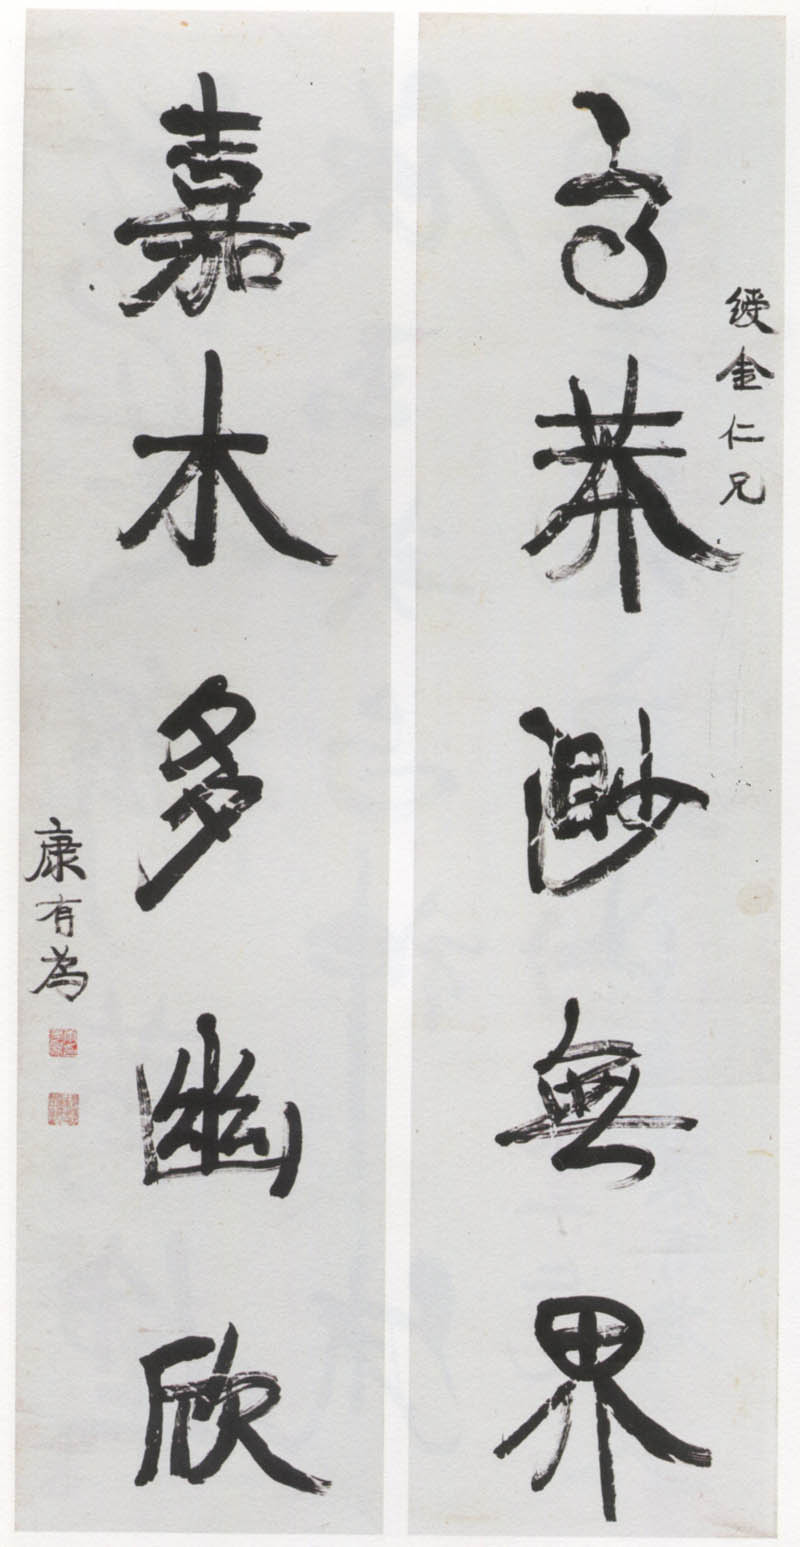 綬金仁兄
高莽渺無界
嘉木多幽欣
康有為